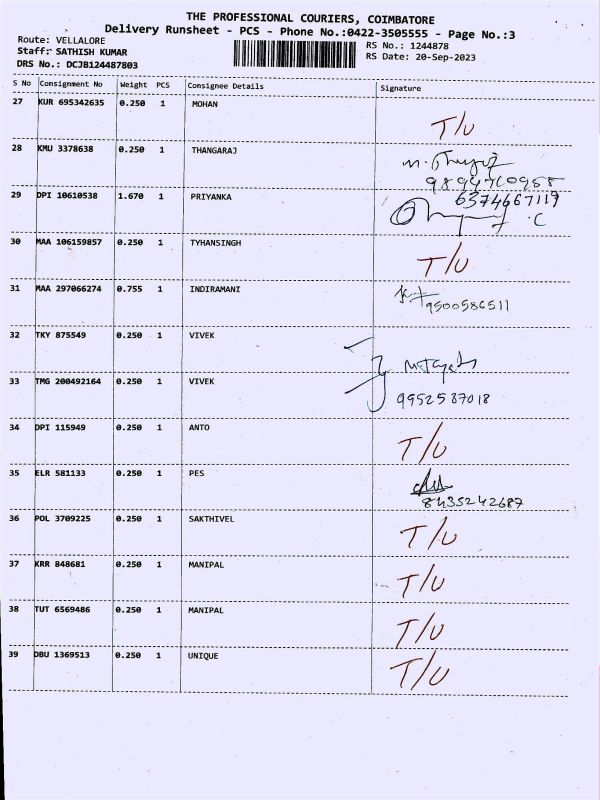 THE PROFESSIONAL COURIERS, COIMBATORE
Delivery Runsheet - PCS - Phone No.:0422-3505555 - Page No.:3
Route: VELLALORE
RS No.: 1244878
Staff: SATHISH KUMAR
RS Date: 20-Sep-2023
DRS No.: DCJB124487803
S No Consignment No Weight PCS Consignee Details Signature
27 KUR 695342635 0.250 1 MOHAN
T/U
28 KMU 3378638 0.250 1 THANGARAJ
29 DPI 10610538 1.670 1 PRIYANKA
6374667119
30 MAA 106159857 0.250 1 TYHANSINGH
T/U
31 MAA 297066274 0.755 1 INDIRAMANI
9500586511
32 TKY 875549 0.250 1 VIVEK
33 TMG 200492164 0.250 1 VIVEK
9952587018
34 DPI 115949 0.250 1 ANTO
T/U
35 ELR 581133 0.250 1 PES
8435242687
36 POL 3709225 0.250 1 SAKTHIVEL
T/U
37 KRR 848681 0.250 1 MANIPAL
T/U
38 TUT 6569486 0.250 1 MANIPAL
T/U
39 DBU 1369513 0.250 1 UNIQUE
T/U